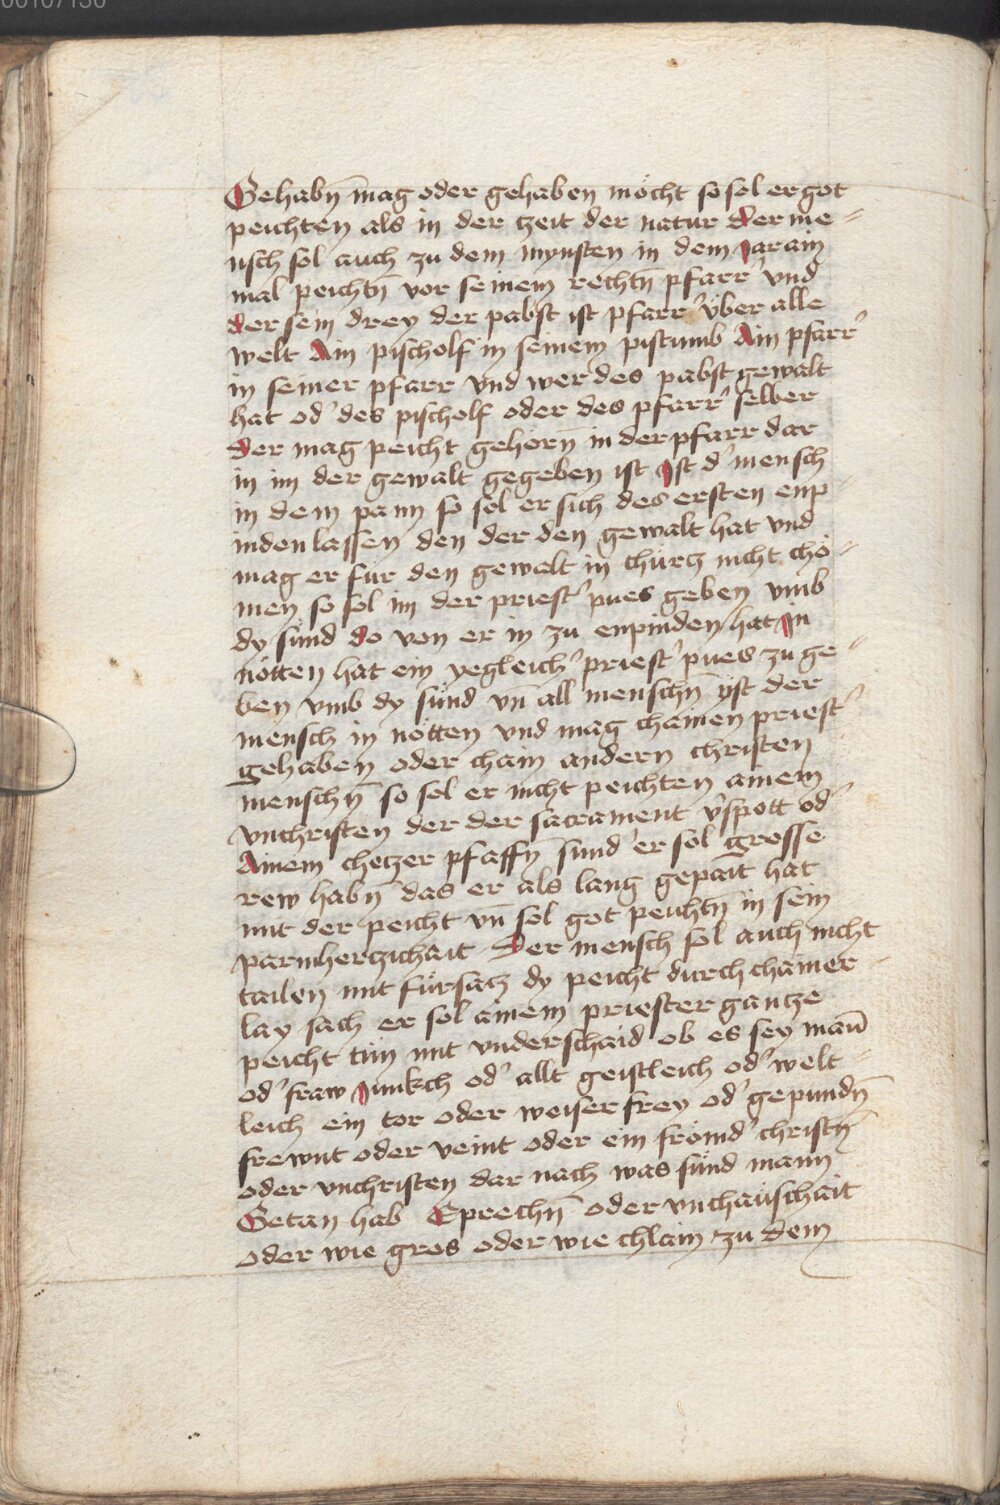 00107150
Gehabn̄ mag oder gehaben möcht so sol er got
peichten als in der czeit der natur Der me-
nsch sol auch zu dem mynsten in dem Jar ain
mal peichtn̄ vor seinem rechtn̄ pfarr' vnd
der sein drey der pabst ist pfarr' vber alle
welt Ain pischolf in seinem pistumb Ain pfarr'
in seiner pfarr vnd wer des pabst gewalt
hat od' des pischolf oder des pfarr' selber
Der mag peicht gehörn̄ in der pfarr dar
in im der gewalt gegeben ist Ist d' mensch
in dem pann so sol er sich des ersten enp-
inden lassen den der den gewalt hat vnd
mag er für den gewalt in churcz nicht chö-
men so sol im der priest' pues geben vmb
dy sünd do von er in zu enpinden hat In
nötten hat ein yegleich' priest' pues zu ge-
ben vmb dy sünd vn̄ all menschn̄ yst der
mensch in nötten vnd mag chainen priest'
gehaben oder chain andern christen
menschn̄ so sol er nicht peichten ainem
vnchristen der der sacrament v'spott od'
Ainem checzer pfaffn̄ sund' er sol grosse
rew habn̄ das er als lang gepait hat
mit der peicht vn̄ sol got peichtn̄ in sein
parmherczichait Der mensch sol auch nicht
tailen mit fürsacz dy peicht durch chainer-
lay sach er sol ainem priester gancze
peicht tün mit vnderschaid ob es sey man̄
od' fraw Junkch od' allt geistleich od' welt-
leich ein tor oder weiser frey od' gepundn̄
frewnt oder veint oder ein frömd' christn̄
oder vnchristen dar nach was sünd mann
Getan hab Eprechn̄ oder vnchäuschait
oder wie gros oder wie chlain zu dem